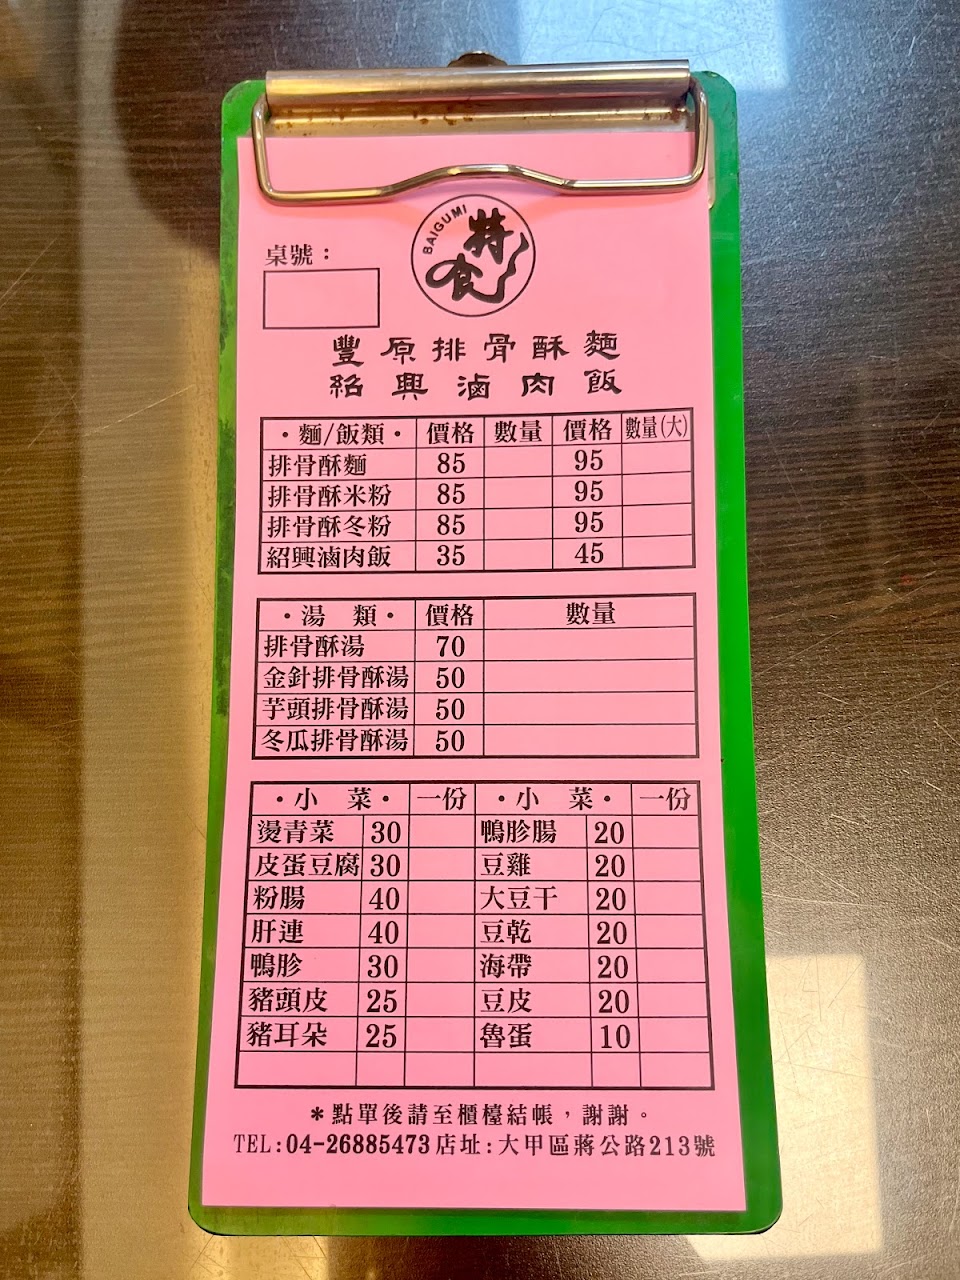 BAIGUMI
特食
桌號：
豐原排骨酥麵
紹興滷肉飯
·麵/飯類· 價格 數量 價格 數量(大)
排骨酥麵 85 95
排骨酥米粉 85 95
排骨酥冬粉 85 95
紹興滷肉飯 35 45
·湯 類· 價格 數量
排骨酥湯 70
金針排骨酥湯 50
芋頭排骨酥湯 50
冬瓜排骨酥湯 50
·小 菜· 一份 ·小 菜· 一份
燙青菜 30 鴨胗腸 20
皮蛋豆腐 30 豆雞 20
粉腸 40 大豆干 20
肝連 40 豆乾 20
鴨胗 30 海帶 20
豬頭皮 25 豆皮 20
豬耳朵 25 魯蛋 10
＊點單後請至櫃檯結帳，謝謝。
TEL:04-26885473 店址:大甲區蔣公路213號